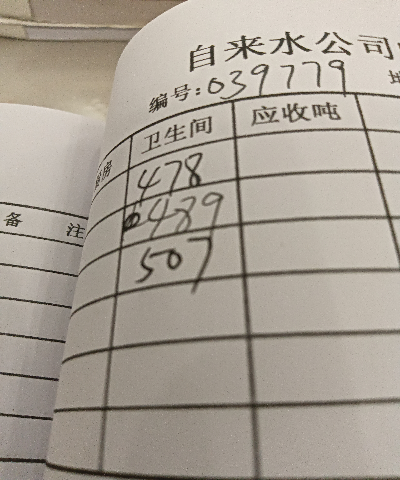 自来水公司
编号:039779
房 卫生间 应收吨
478
489
507
备 注